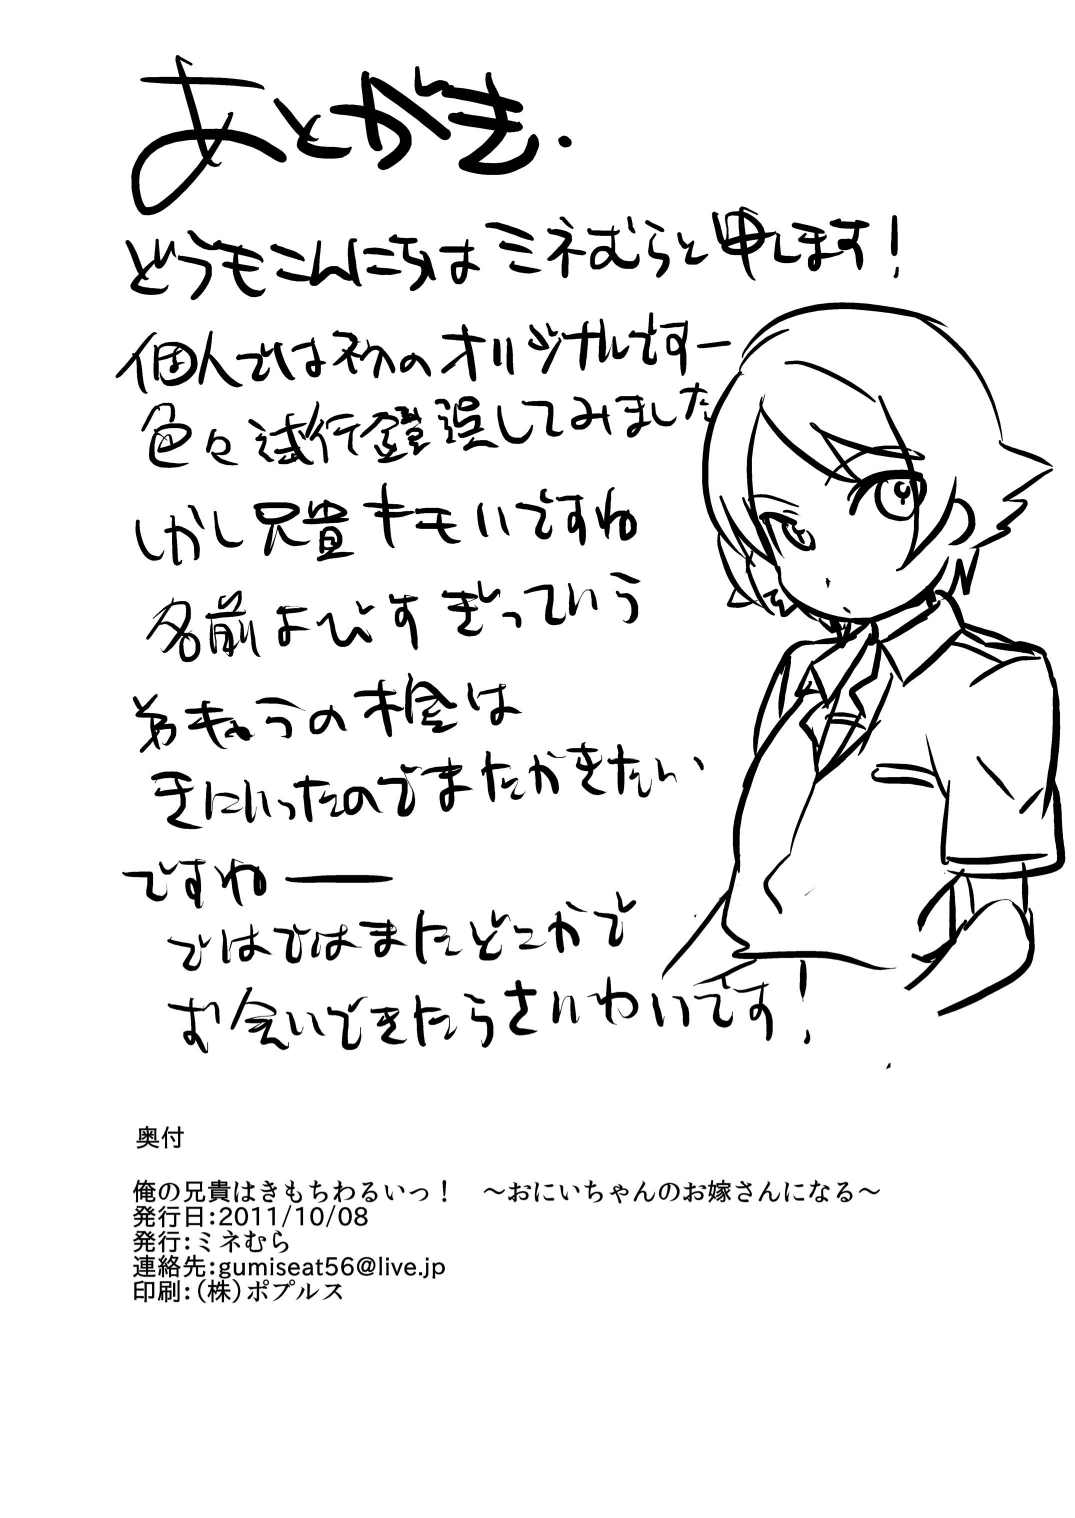 あとがき.
どうもこんにちは ミネむらと申します!
個人では初のオリジナルですー
色々試行錯誤してみました
しかし兄貴キモいですね
名前よびすぎっていう
弟きゅうの桧は
きにいったのでまたかきたい
ですねー
ではではまたどこかで
お会いできたらさいわいです!
奥付
俺の兄貴はきもちわるいっ! ～おにいちゃんのお嫁さんになる～
発行日:2011/10/08
発行:ミネむら
連絡先:gumiseat56@live.jp
印刷:(株)ポプルス